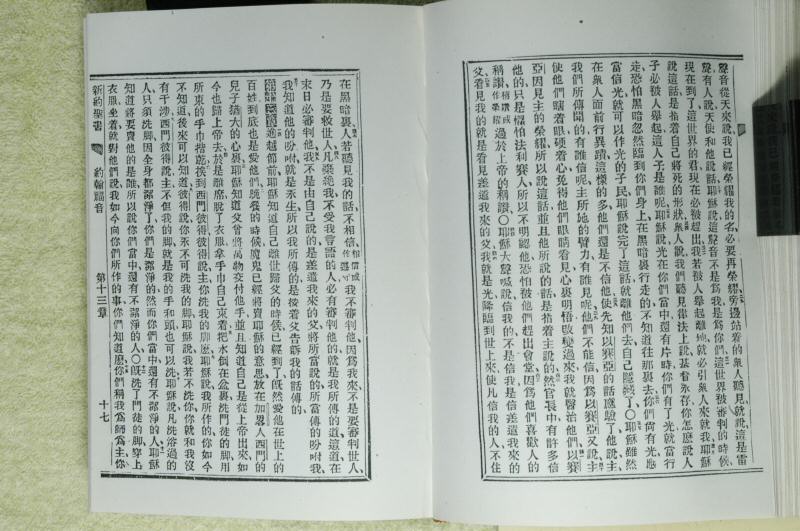 聲音從天來說我已經榮耀我的名必要再榮耀旁邊站着的衆人聽見就說這是雷
聲有人說天使和他說話耶穌說這聲音不是爲我是爲你們這世界被審判的時候
現在到了這世界的君現在必被趕出我若被人舉起離地就必引衆人來就我耶穌
說這話是指着自己將死的形狀衆人說我們聽見律法上說基督永存你怎麽說人
子必被人舉起這人子是誰呢耶穌說光在你們當中還有片時你們有了光就當行
走恐怕黑暗忽然臨到你們身上在黑暗裏行走的不知道往那裏去你們尙有光應
當信光就可以作光的子民耶穌說完了這話就離他們去自己隱藏了〇耶穌雖然
在衆人面前行異蹟這樣的多他們還是不信他使先知以賽亞的話應驗了他說主
我們所傳聞的有誰信呢主所施的臂力有誰見呢他們不能信因爲以賽亞又說主
使他們瞎着眼硬着心免得他們眼睛看見心裏明悟改變過來我就醫治他們以賽
亞因見主的榮耀所以說這話並且他所說的話是指着主說的然官長中有許多信
他的只是懼怕法利賽人所以不明認他恐怕被他們趕出會堂因爲他們喜歡人的
稱讚稱讚或作榮耀過於上帝的稱讚〇耶穌大聲喊說信我的不是信我是信差遣我來的
父看見我的就是看見差遣我來的父我就是光降臨到世上來使凡信我的人不住
在黑暗裏人若聽見我的話不相信相信或作遵守我不審判他因爲我來不是要審判世人
乃是要救世人凡棄絕我不受我言語的人必有審判他的就是我所傳的道這道在
末日必審判他我不是由自己說的是差遣我來的父將所當說的所當傳的吩咐我
我知道他的吩咐就是永生所以我所傳的是按着父告訴我的話傳的
踰越節前耶穌知道自己離世歸父的時候已經到了旣然愛他在世上的
百姓到底也是愛他們晚餐的時候魔鬼已經將賣耶穌的意思放在加畧人西門的
兒子猶大的心裏耶穌知道父曾將萬物交付他手並且知道自己是從上帝出來如
今也歸上帝去於是離席脫了衣服拿手巾自己束着把水倒在盆裏洗門徒的脚用
所束的手巾揩乾挨到西門彼得彼得說主你洗我的脚麽耶穌說我所作的你如今
不知道後來可以知道彼得說你永不可洗我的脚耶穌說我若不洗你你就和我沒
有干涉西門彼得說主不但我的脚就是我的手和頭也可以洗耶穌說凡洗浴過的
人只須洗脚因全身都潔淨了你們是潔淨的然而你們當中還有不潔淨的人耶穌
知道將要賣他的是誰所以說你們當中還有不潔淨的人〇旣洗了門徒的脚穿上
衣服坐着就對他們說我如今向你們所作的事你們知道麽你們稱我爲師爲主你
新約聖書 約翰福音 第十三章 十七